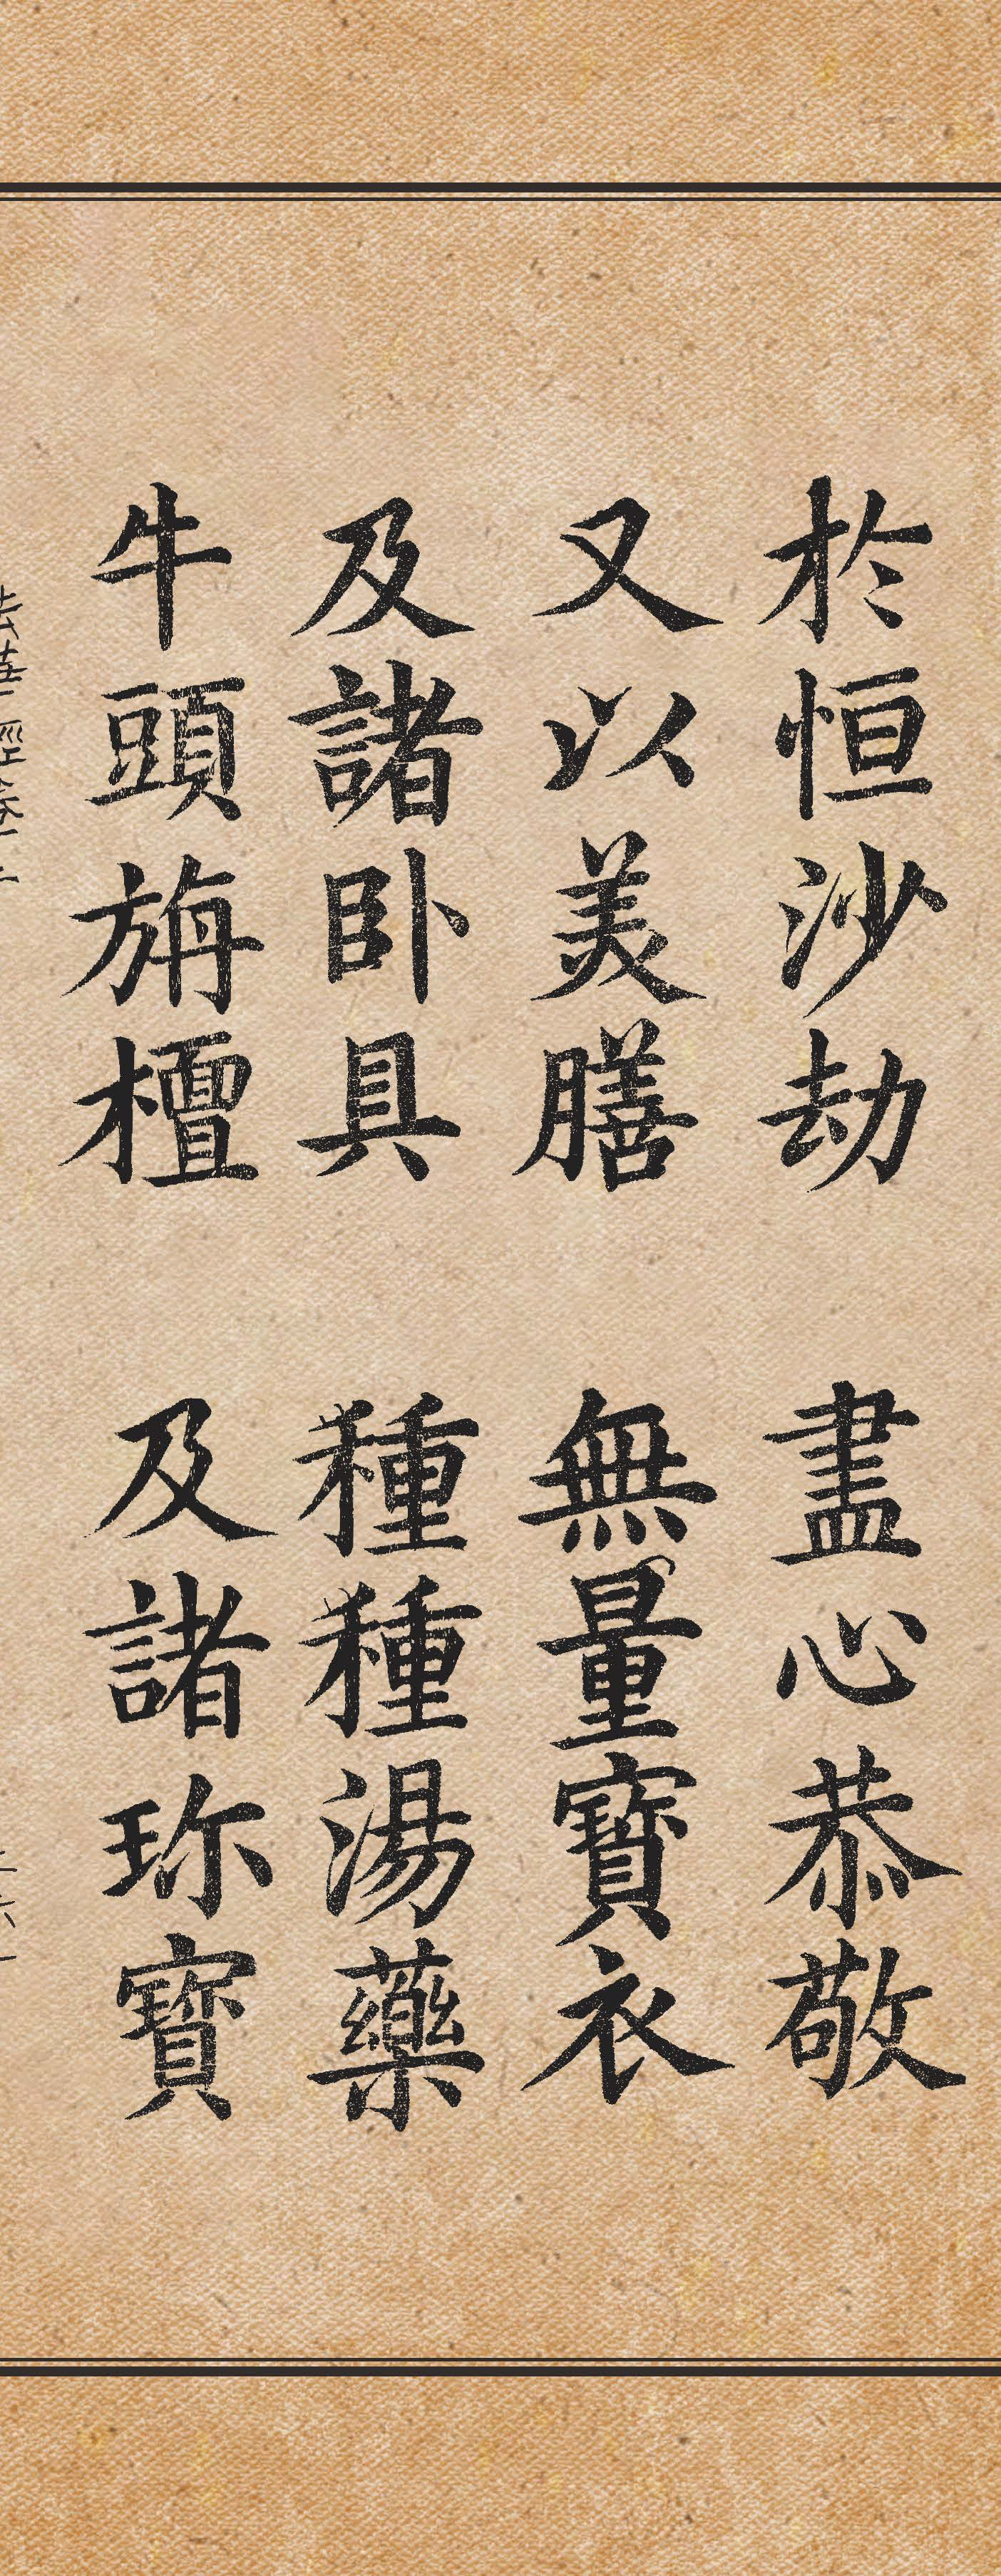 於恒沙劫　盡心恭敬
又以美膳　無量寶衣
及諸卧具　種種湯藥
牛頭旃檀　及諸珎寶